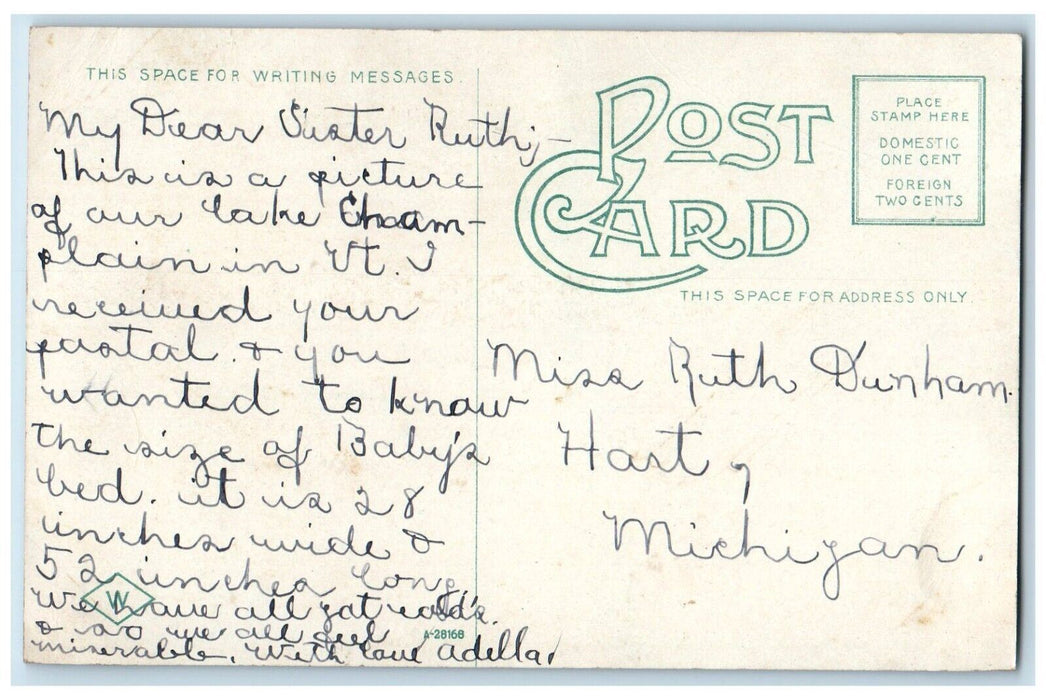 THIS SPACE FOR WRITING MESSAGES.
My Dear Sister Ruth;-
This is a picture
of our lake Cham-
plain in Vt. I
received your
postal. & you
wanted to know
the size of Baby's
bed. it is 28
inches wide &
52 inches long.
We have all got colds.
& so we all feel
miserable. With love Adella.
W
A-28168
POST
CARD
PLACE
STAMP HERE
DOMESTIC
ONE CENT
FOREIGN
TWO CENTS
THIS SPACE FOR ADDRESS ONLY.
Miss Ruth Dunham.
Hart,
Michigan.